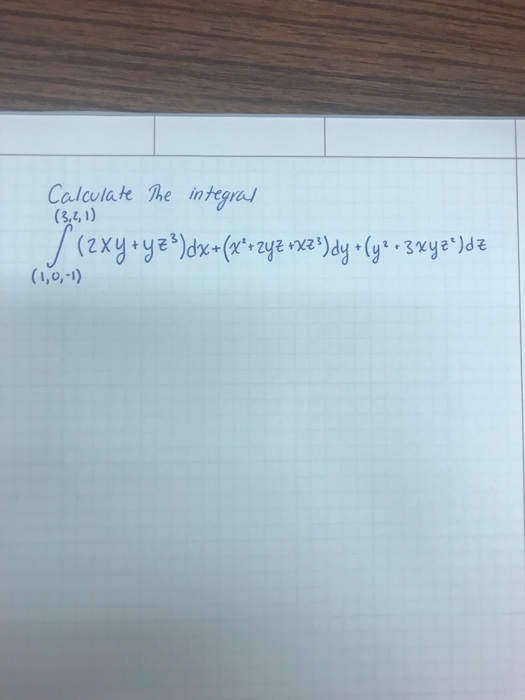 Calculate The integral
(3,2,1)
∫ (2xy + yz³)dx + (x² + 2yz + xz³)dy + (y² + 3xyz²)dz
(1,0,-1)